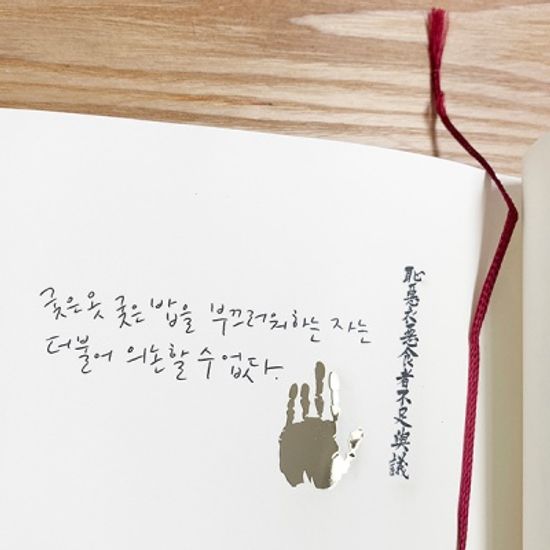 궂은 옷 궂은 밥을 부끄러워하는 자는
더불어 의논할 수 없다.
恥惡衣惡食者不足與議